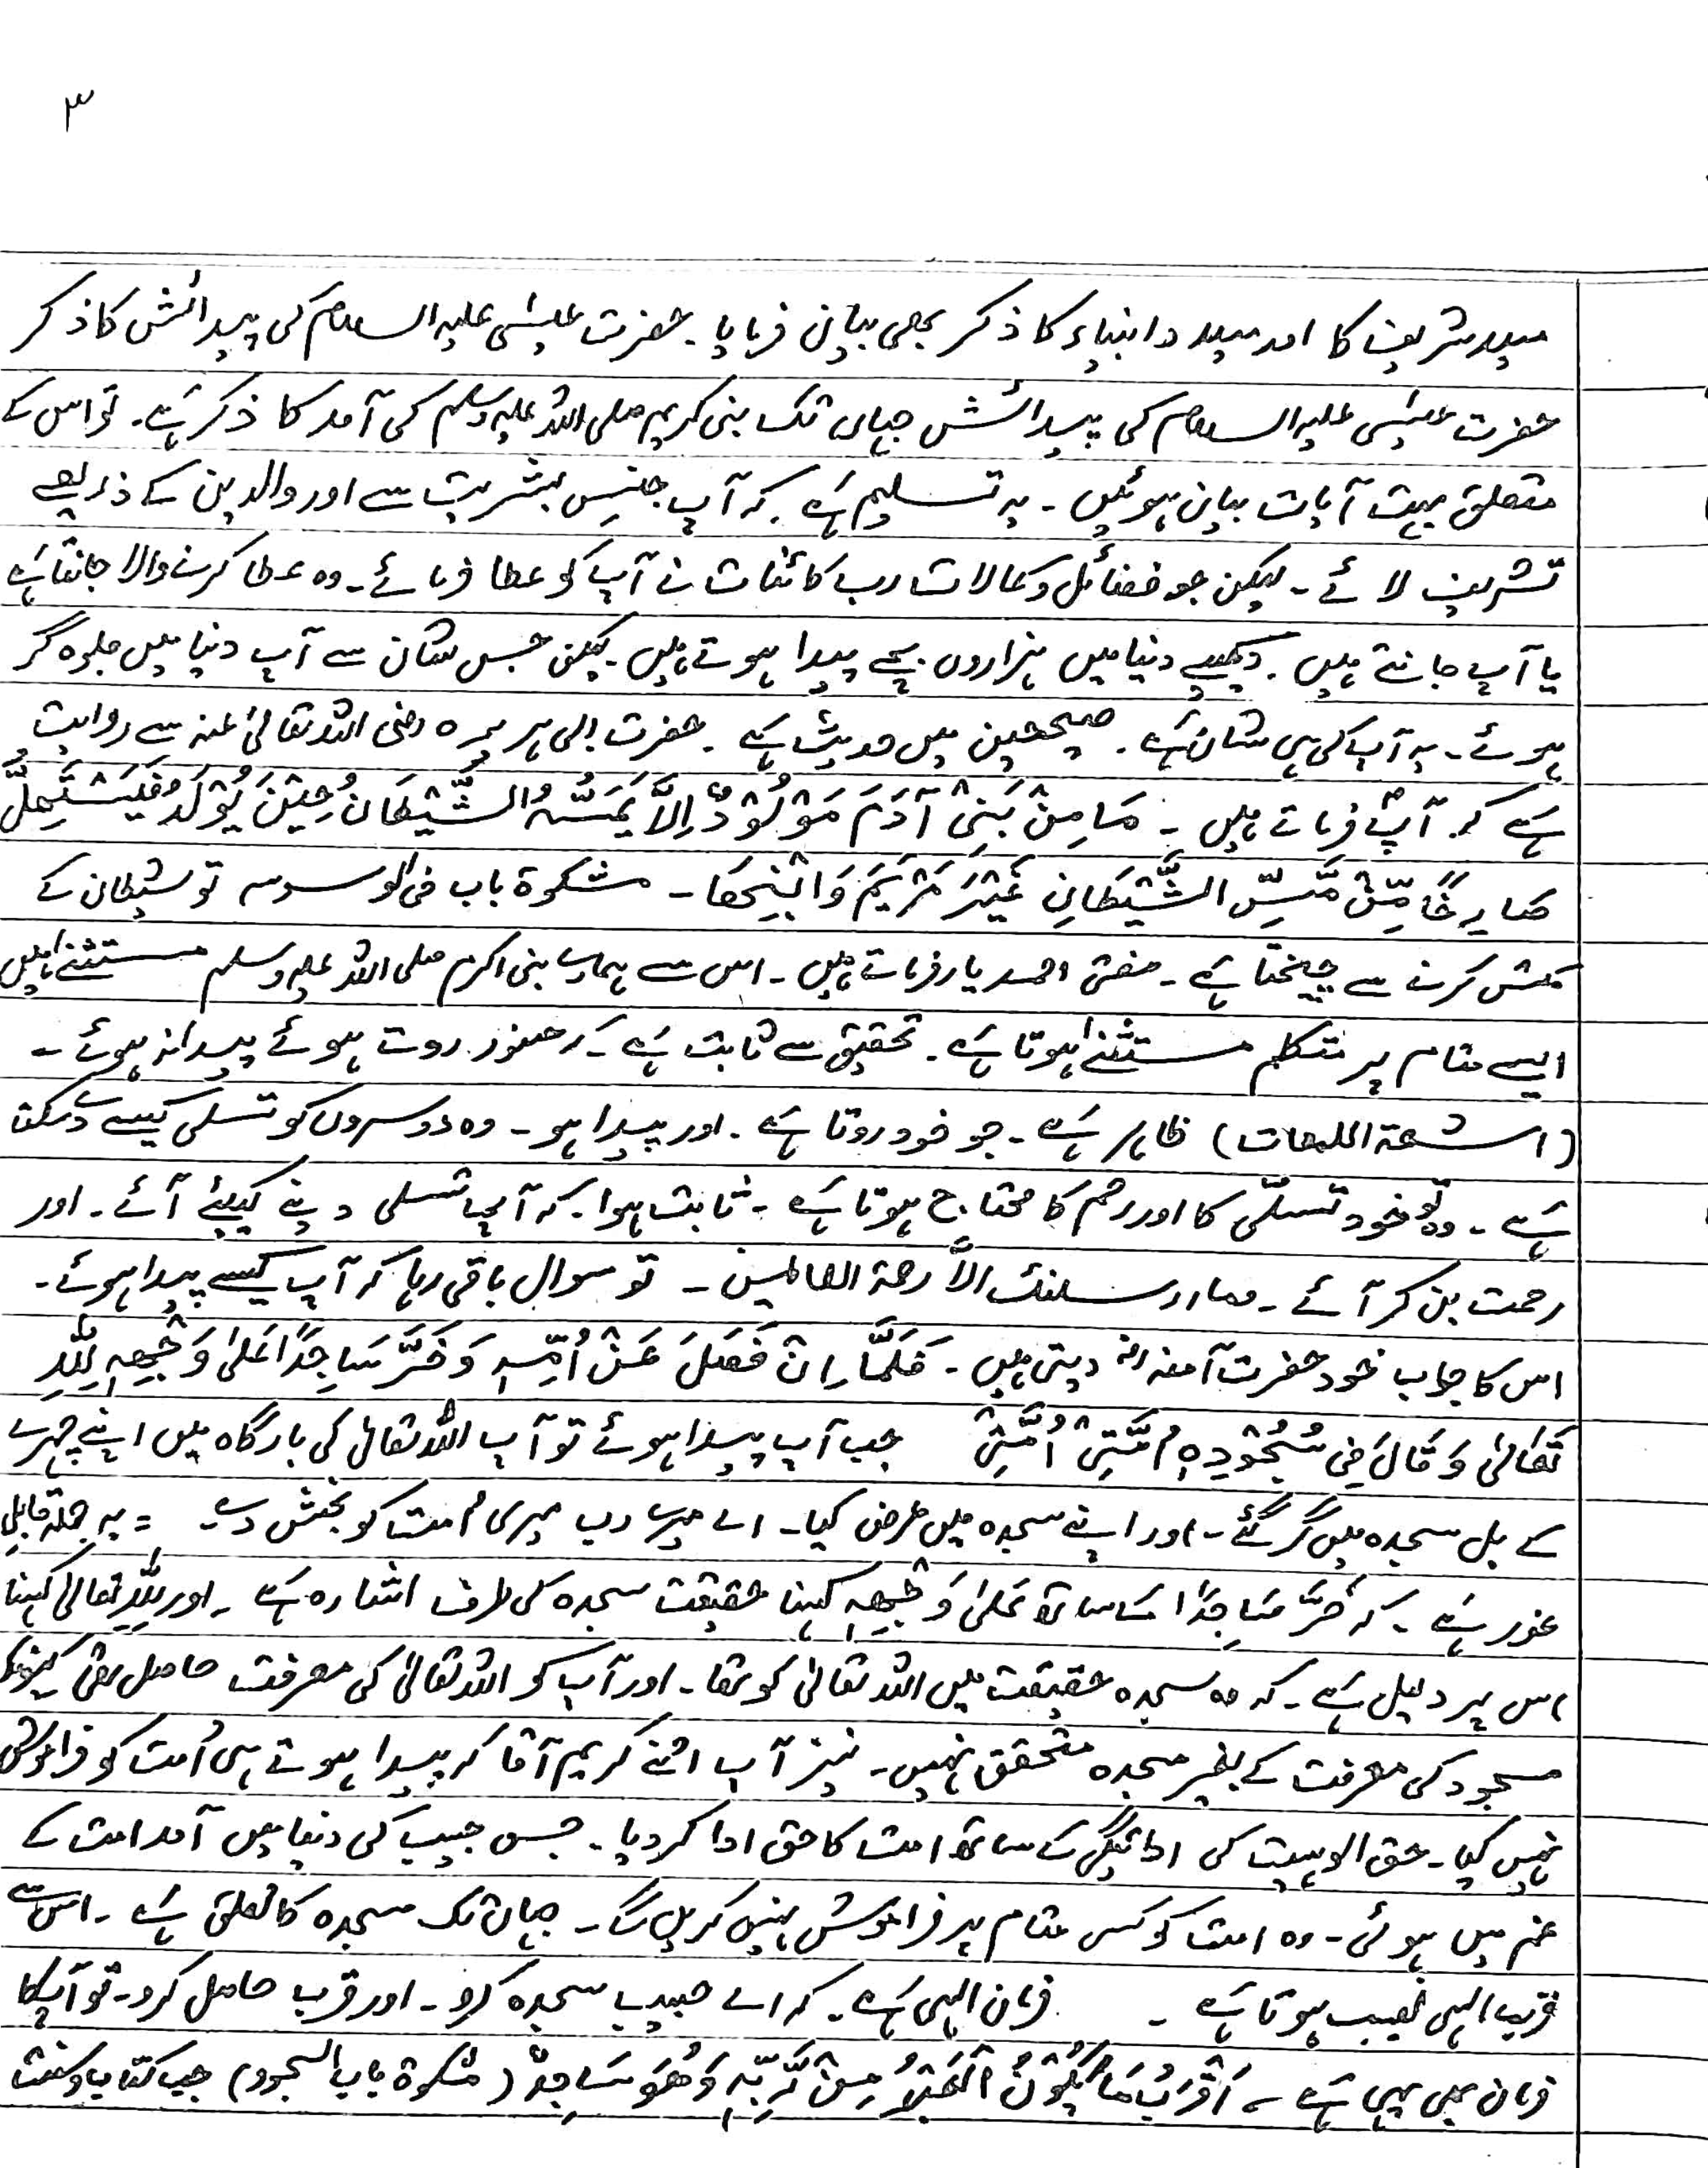 ۳
میلاد شریف کا اور میلاد انبیاء کا ذکر بھی بیان فرمایا۔ حضرت عیسٰی علیہ السلام کی پیدائش کا ذکر
حضرت عیسٰی علیہ السلام کی پیدائش جہاں تک نبی کریم صلی اللہ علیہ وسلم کی آمد کا ذکر ہے۔ تو اس کے
متعلق بہت آیات بیان ہوئیں۔ یہ تسلیم ہے کہ آپ جنس بشریت سے اور والدین کے ذریعے
تشریف لائے۔ لیکن جو فضائل و کمالات رب کائنات نے آپ کو عطا فرمائے۔ وہ عطا کرنے والا جانتا ہے
یا آپ جانتے ہیں۔ دیکھیے دنیا میں ہزاروں بچے پیدا ہوتے ہیں۔ لیکن جس شان سے آپ دنیا میں جلوہ گر
ہوئے۔ یہ آپ کی ہی شان ہے۔ صحیحین میں حدیث ہے۔ حضرت ابی ہریرہ رضی اللہ تعالیٰ عنہ سے روایت
ہے کہ آپؐ فرماتے ہیں۔ مَا مِنْ بَنِیْ آدَمَ مَوْلُوْدٌ اِلَّا یَمَسُّہُ الشَّیْطَانُ حِیْنَ یُوْلَدُ فَیَسْتَہِلُّ
صَارِخًا مِّنْ مَّسِّ الشَّیْطَانِ غَیْرَ مَرْیَمَ وَابْنِھَا۔ مشکوۃ باب فی الوسوسہ تو شیطان کے
مس کرنے سے چیختا ہے۔ مفتی احمد یار فرماتے ہیں۔ اس سے ہمارے نبی اکرم صلی اللہ علیہ وسلم مستثنےٰ ہیں
ایسے مقام پر متکلم مستثنےٰ ہوتا ہے۔ تحقیق سے ثابت ہے۔ کہ حضور روتے ہوئے پیدا نہ ہوئے۔
(اشعۃ اللمعات) ظاہر ہے۔ جو خود روتا ہے۔ اور پیدا ہو۔ وہ دوسروں کو تسلی کیسے دے سکتا
ہے۔ وہ تو خود تسلّی کا اور رحم کا محتاج ہوتا ہے۔ ثابت ہوا۔ کہ آپ تسلی دینے کیلئے آئے۔ اور
رحمت بن کر آئے۔ وما ارسلنٰک الاَّ رحمۃ العالمین۔ تو سوال باقی رہا کہ آپ کیسے پیدا ہوئے۔
اس کا جواب خود حضرت آمنہ رضہ دیتی ہیں۔ فَلَمَّا اِنْ فَصَلَ عَنْ اُمِّہٖ وَ خَرَّ سَاجِدًا عَلیٰ وَجْھِہٖ لِلّٰہِ
تَعَالیٰ وَ قَالَ فِی سُجُوْدِہٖ اُمَّتِیْ اُمَّتِیْ جب آپ پیدا ہوئے تو آپ اللہ تعالیٰ کی بارگاہ میں اپنے چہرے
کے بل سجدہ میں گر گئے۔ اور اپنے سجدہ میں عرض کیا۔ اے میرے رب میری امت کو بخش دے۔ = یہ جملہ قابل
غور ہے۔ کہ خَرَّ سَاجِدًا کے ساتھ عَلیٰ وَجْھِہٖ کہنا حقیقت سجدہ کی طرف اشارہ ہے۔ اور لِلّٰہِ تعالیٰ کہنا
اس پر دلیل ہے۔ کہ وہ سجدہ حقیقت میں اللہ تعالیٰ کو تھا۔ اور آپ کو اللہ تعالیٰ کی معرفت حاصل تھی کیونکہ
مسجود کی معرفت کے بغیر سجدہ متحقق نہیں۔ نیز آپ اتنے کریم آقا کہ پیدا ہوتے ہی اُمت کو فراموش
نہیں کیا۔ حق الوہیت کی ادائیگی کے ساتھ امت کا حق ادا کر دیا۔ جس حبیب کی دنیا میں آمد امت کے
غم میں ہوئی۔ وہ امت کو کس مقام پر فراموش نہیں کریں گے۔ جہاں تک سجدہ کا تعلق ہے۔ اس سے
قرب الہی نصیب ہوتا ہے۔ فرمان الہی ہے۔ کہ اے حبیب سجدہ کرو۔ اور قرب حاصل کرو۔ تو آپ کا
فرمان بھی یہی ہے۔ اَقْرَبُ مَا یَکُوْنُ الْعَبْدُ مِنْ رَّبِّہٖ وَھُوَ سَاجِدٌ (مشکوۃ باب السجود) جب کتاب و سنت